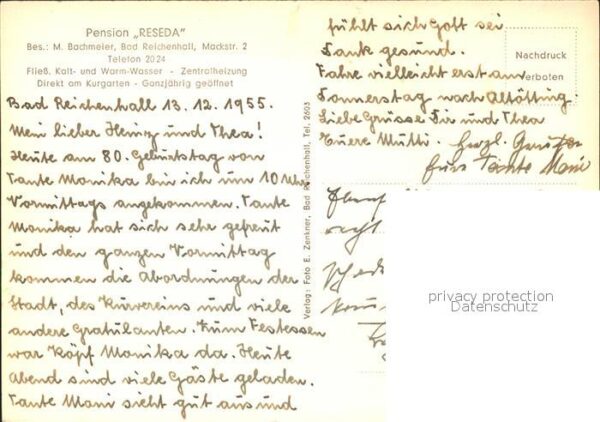 Pension „RESEDA"
Bes.: M. Bachmeier, Bad Reichenhall, Mackstr. 2
Telefon 2024
Fließ. Kalt- und Warm-Wasser - Zentralheizung
Direkt am Kurgarten - Ganzjährig geöffnet
Bad Reichenhall 13.12.1955.
Mein lieber Heinz und Thea!
Heute am 80. Geburtstag von
Tante Monika bin ich um 10 Uhr
Vormittags angekommen. Tante
Monika hat sich sehr gefreut
und den ganzen Vormittag
kommen die Abordnungen der
Stadt, des Kurvereins und viele
andere Gratulanten. Zum Festessen
war Köpf Monika da. Heute
Abend sind viele Gäste geladen.
Tante Moni sieht gut aus und
fühlt sich Gott sei
Dank gesund.
Fahre vielleicht erst am
Donnerstag nach Altötting.
Liebe Grüsse Dir und Thea
Euere Mutti. herzl.
Tante Moni
Nachdruck
verboten
Verlag: Foto E. Zenkner, Bad Reichenhall, Tel. 2603
privacy protection
Datenschutz